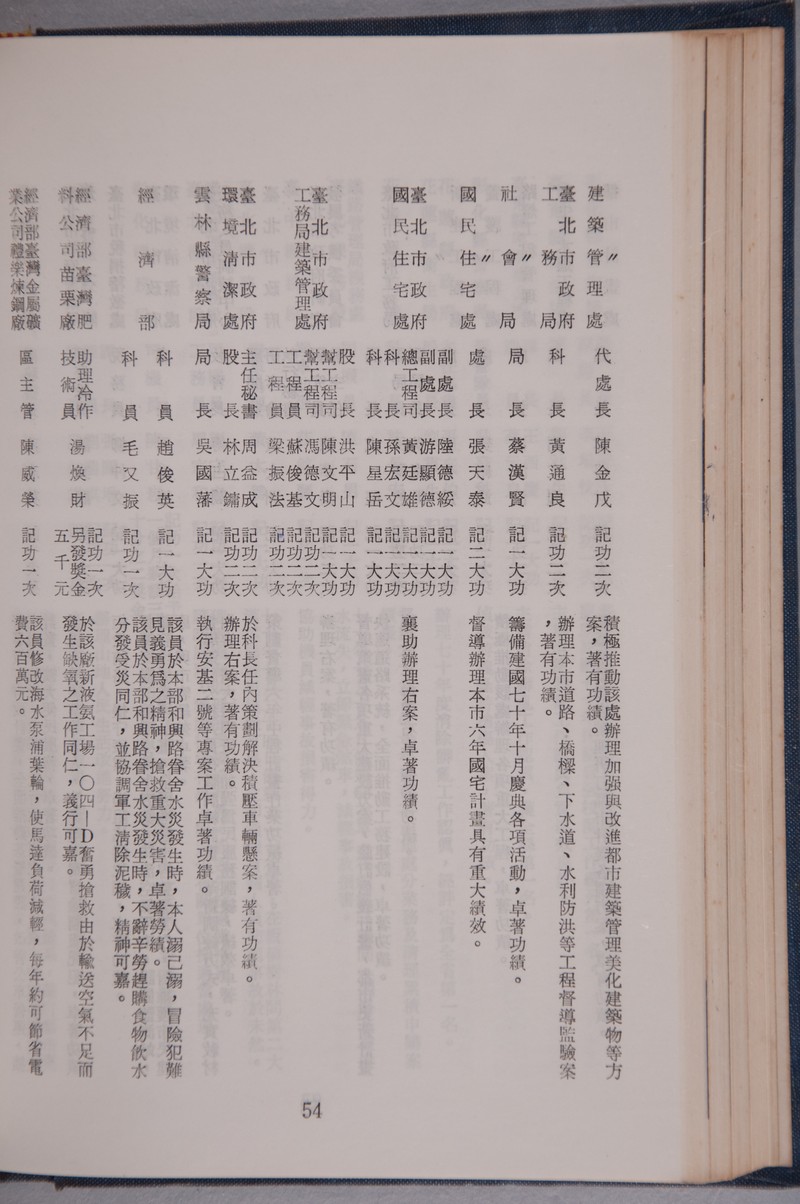 建築管理處　代處長　陳金戊　記功二次　積極推動該處辦理加强與改進都市建築管理美化建築物等方
案，著有功績。
〃
臺北市政府
工務局　科長　黃通良　記功二次　辦理本市道路、橋樑、下水道、水利防洪等工程督導監驗案
，著有功績。
〃
社會局　局長　蔡漢賢　記一大功　籌備建國七十年十月慶典各項活動，卓著功績。
〃
國民住宅處　處長　張天泰　記二大功　督導辦理本市六年國宅計畫具有重大績效。
臺北市政府
國民住宅處
副處長　陸德綏　記一大功
副處長　游顯德　記一大功
總工程司　黃廷雄　記一大功　襄助辦理右案，卓著功績。
科長　孫宏文　記一大功
科長　陳星岳　記一大功
臺北市政府
工務局建築管理處
股長　洪平山　記一大功
幫工程司　陳文明　記一大功
幫工程司　馮德文　記功二次
工程員　蘇俊基　記功二次
工程員　梁振法　記功二次
臺北市政府
環境清潔處
主任秘書　周益成　記功二次　於科長任內策劃解決積壓車輛懸案，著有功績。
股長　林立鏞　記功二次　辦理右案，著有功績。
雲林縣警察局　局長　吳國藩　記一大功　執行安基二號等專案工作卓著功績。
經濟部
科員　趙俊英　記一大功　該員於本部和興路眷舍水災發生時，本人溺己溺，冒險犯難
見義勇爲之精神，搶救重大災害，卓著勞績。
科員　毛又振　記功一次　該員於本部和興路眷舍水災發生時，不辭辛勞趕購食物飲水
分發受災同仁，並協調軍工淸除泥穢，精神可嘉。
經濟部臺灣肥
料公司苗栗廠
助理冷作
技術員　湯煥財　記功一次
另發獎金
五千元
於該廠新液氨工場一〇四｜D奮勇搶救由於輸送空氣不足而
發生缺氧之工作同仁，義行可嘉。
經濟部臺灣金屬礦
業公司禮樂煉銅廠
區主管　陳威榮　記功一次　該員修改海水泵浦葉輪，使馬達負荷減輕，每年約可節省電
費六百萬元。
54